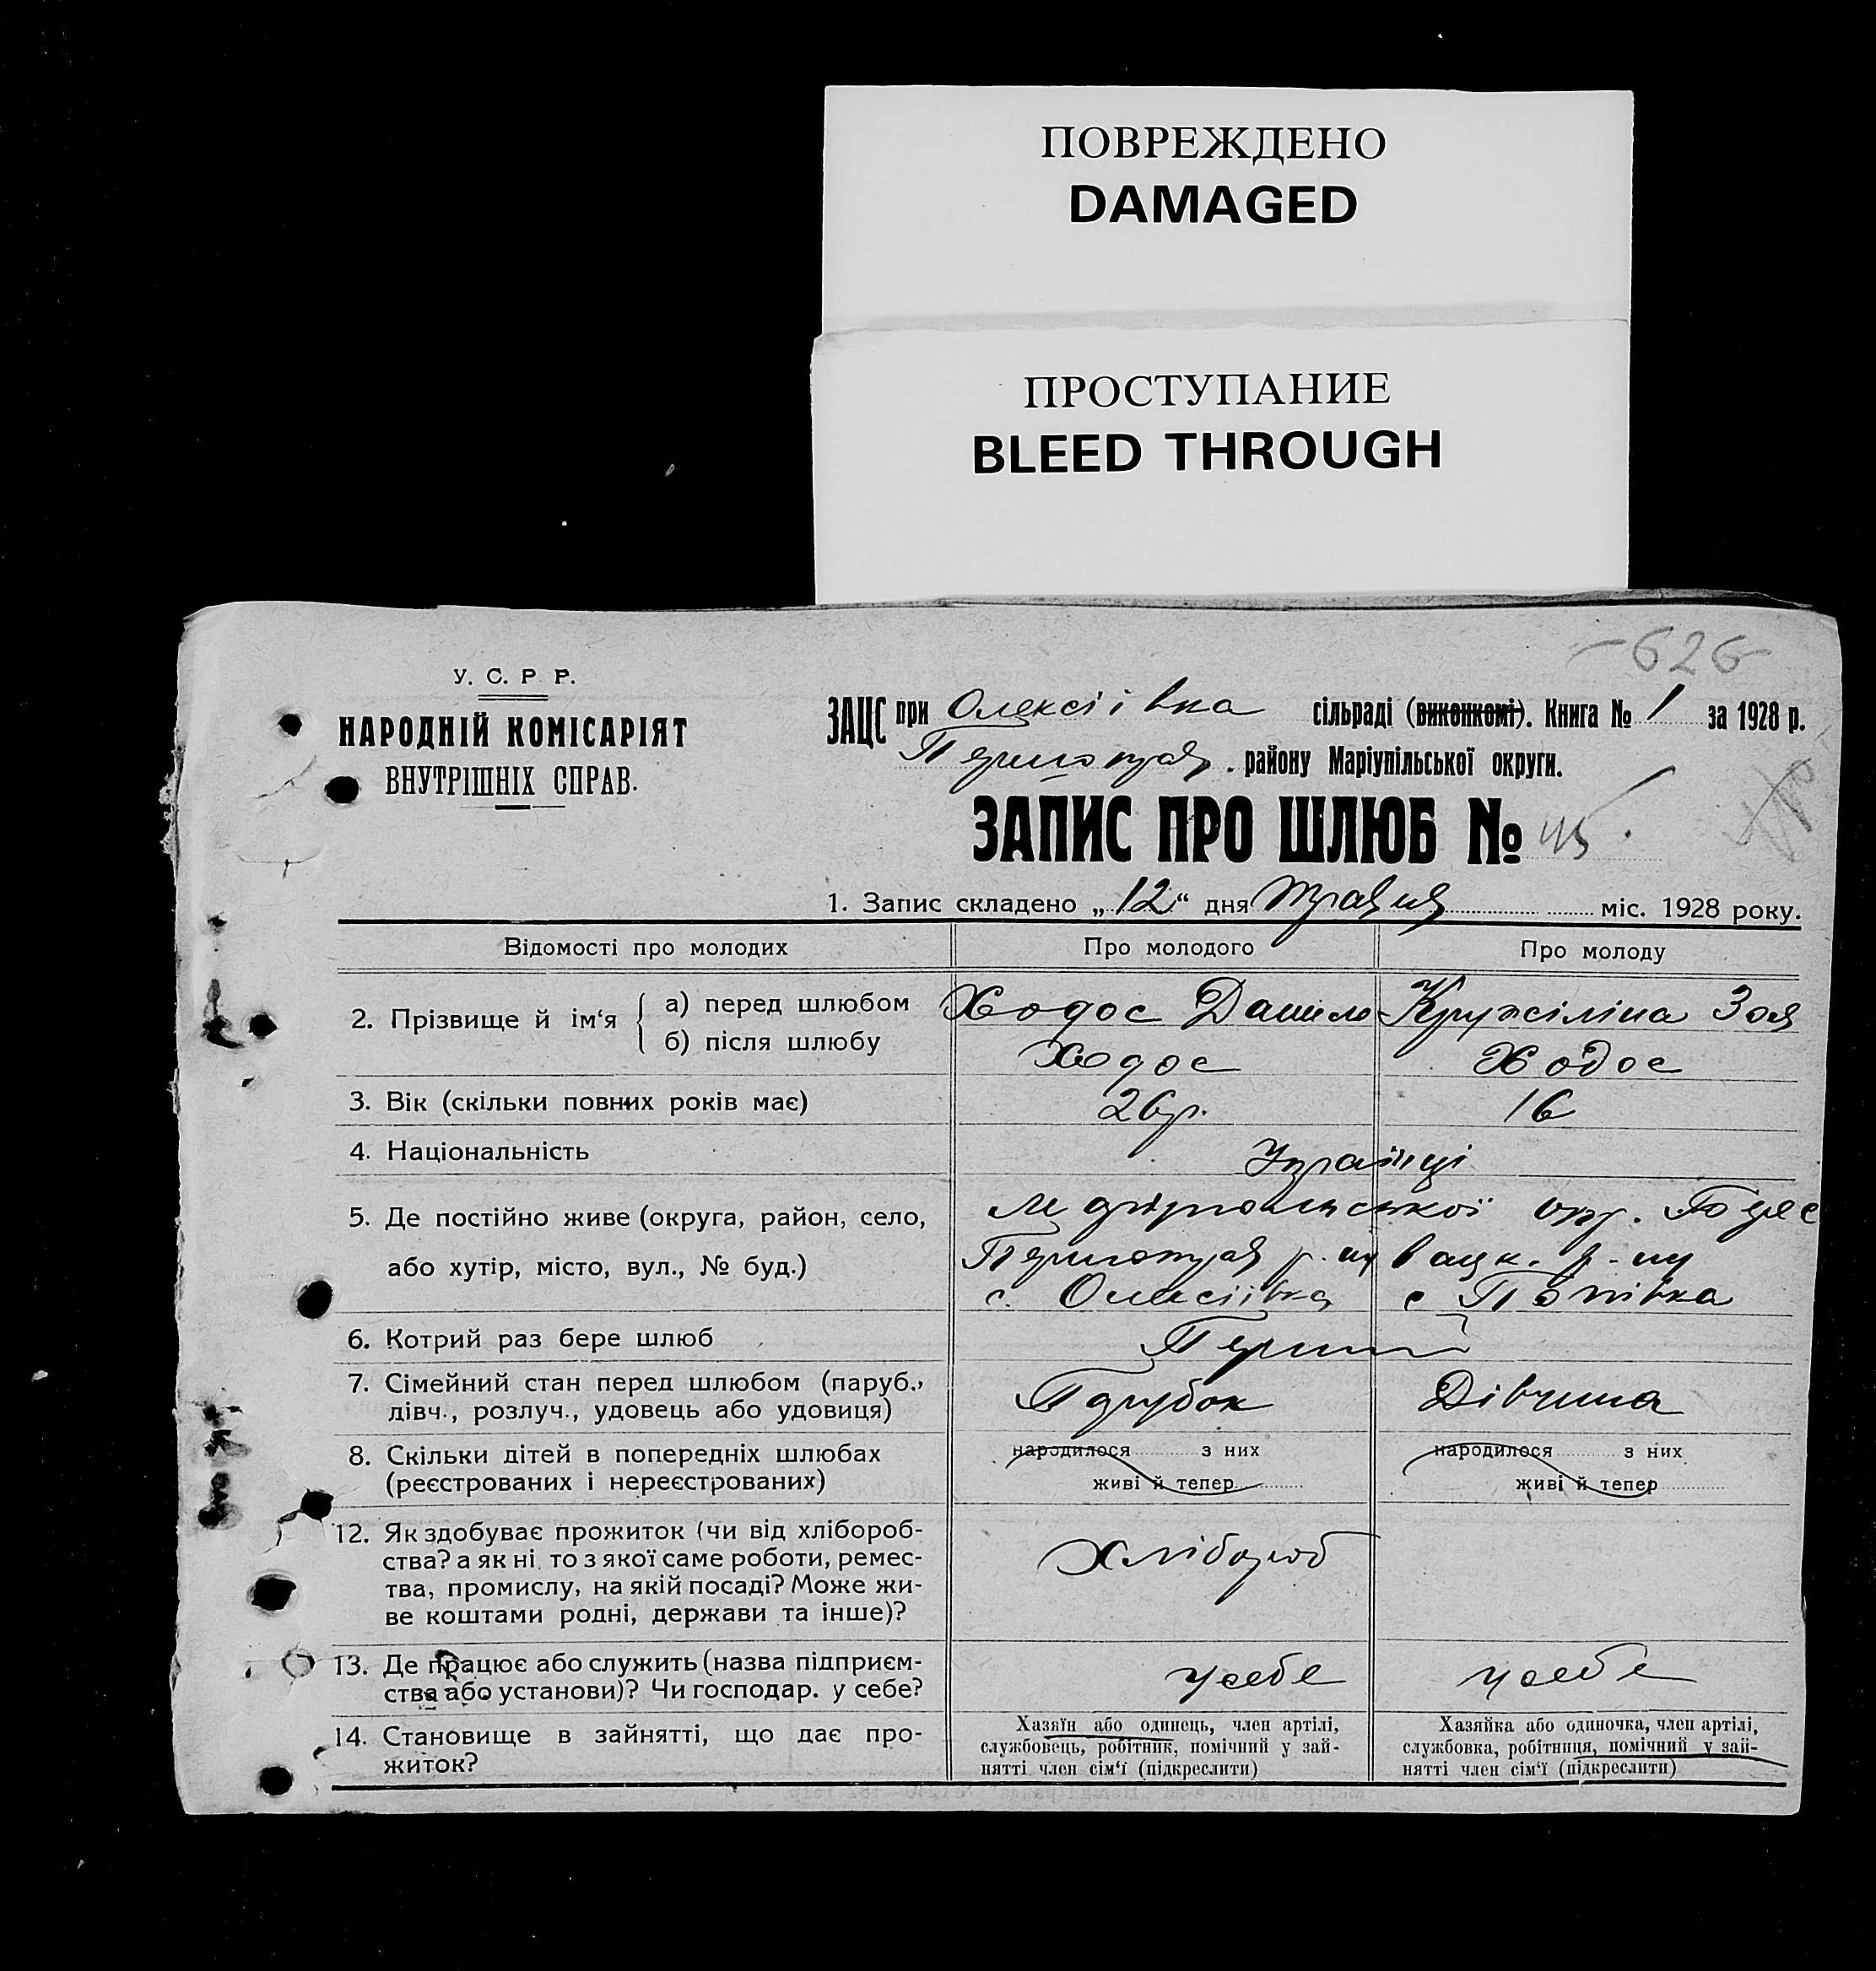 ПОВРЕЖДЕНО
DAMAGED
ПРОСТУПАНИЕ
BLEED THROUGH
626
У. С. Р Р.
НАРОДНІЙ КОМІСАРІЯТ
ВНУТРІШНІХ СПРАВ.
ЗАЦС при Олексіївка сільраді (виконкомі). Книга № 1 за 1928 р.
району Маріупільської округи.
ЗАПИС ПРО ШЛЮБ №
1. Запис складено „12“ дня Травня міс. 1928 року.
Відомості про молодих Про молодого Про молоду
2. Прізвище й ім‘я { а) перед шлюбом Ходос Данило Кружіліна Зоя
б) після шлюбу Ходос Ходос
3. Вік (скільки повних років має) 26 р. 16
4. Національність Українці
5. Де постійно живе (округа, район, село, Маріюпільської окр.
або хутір, місто, вул., № буд.) р-ну р-ну
с. Олексіївка с Попівка
6. Котрий раз бере шлюб Перший
7. Сімейний стан перед шлюбом (паруб., Парубок Дівчина
дівч., розлуч., удовець або удовиця)
8. Скільки дітей в попередніх шлюбах народилося з них народилося з них
(реєстрованих і нереєстрованих) живі й тепер живі й тепер
12. Як здобуває прожиток (чи від хлібороб-
ства? а як ні, то з якої саме роботи, ремес- Хлібороб
тва, промислу, на якій посаді? Може жи-
ве коштами родні, держави та інше)?
13. Де працює або служить (назва підприєм- у себе у себе
ства або установи)? Чи господар. у себе?
14. Становище в зайнятті, що дає про-
житок?
Хазяїн або одинець, член артілі,
службовець, робітник, помічний у зай-
нятті член сім‘ї (підкреслити)
Хазяйка або одиночка, член артілі,
службовка, робітниця, помічний у зай-
нятті член сім‘ї (підкреслити)